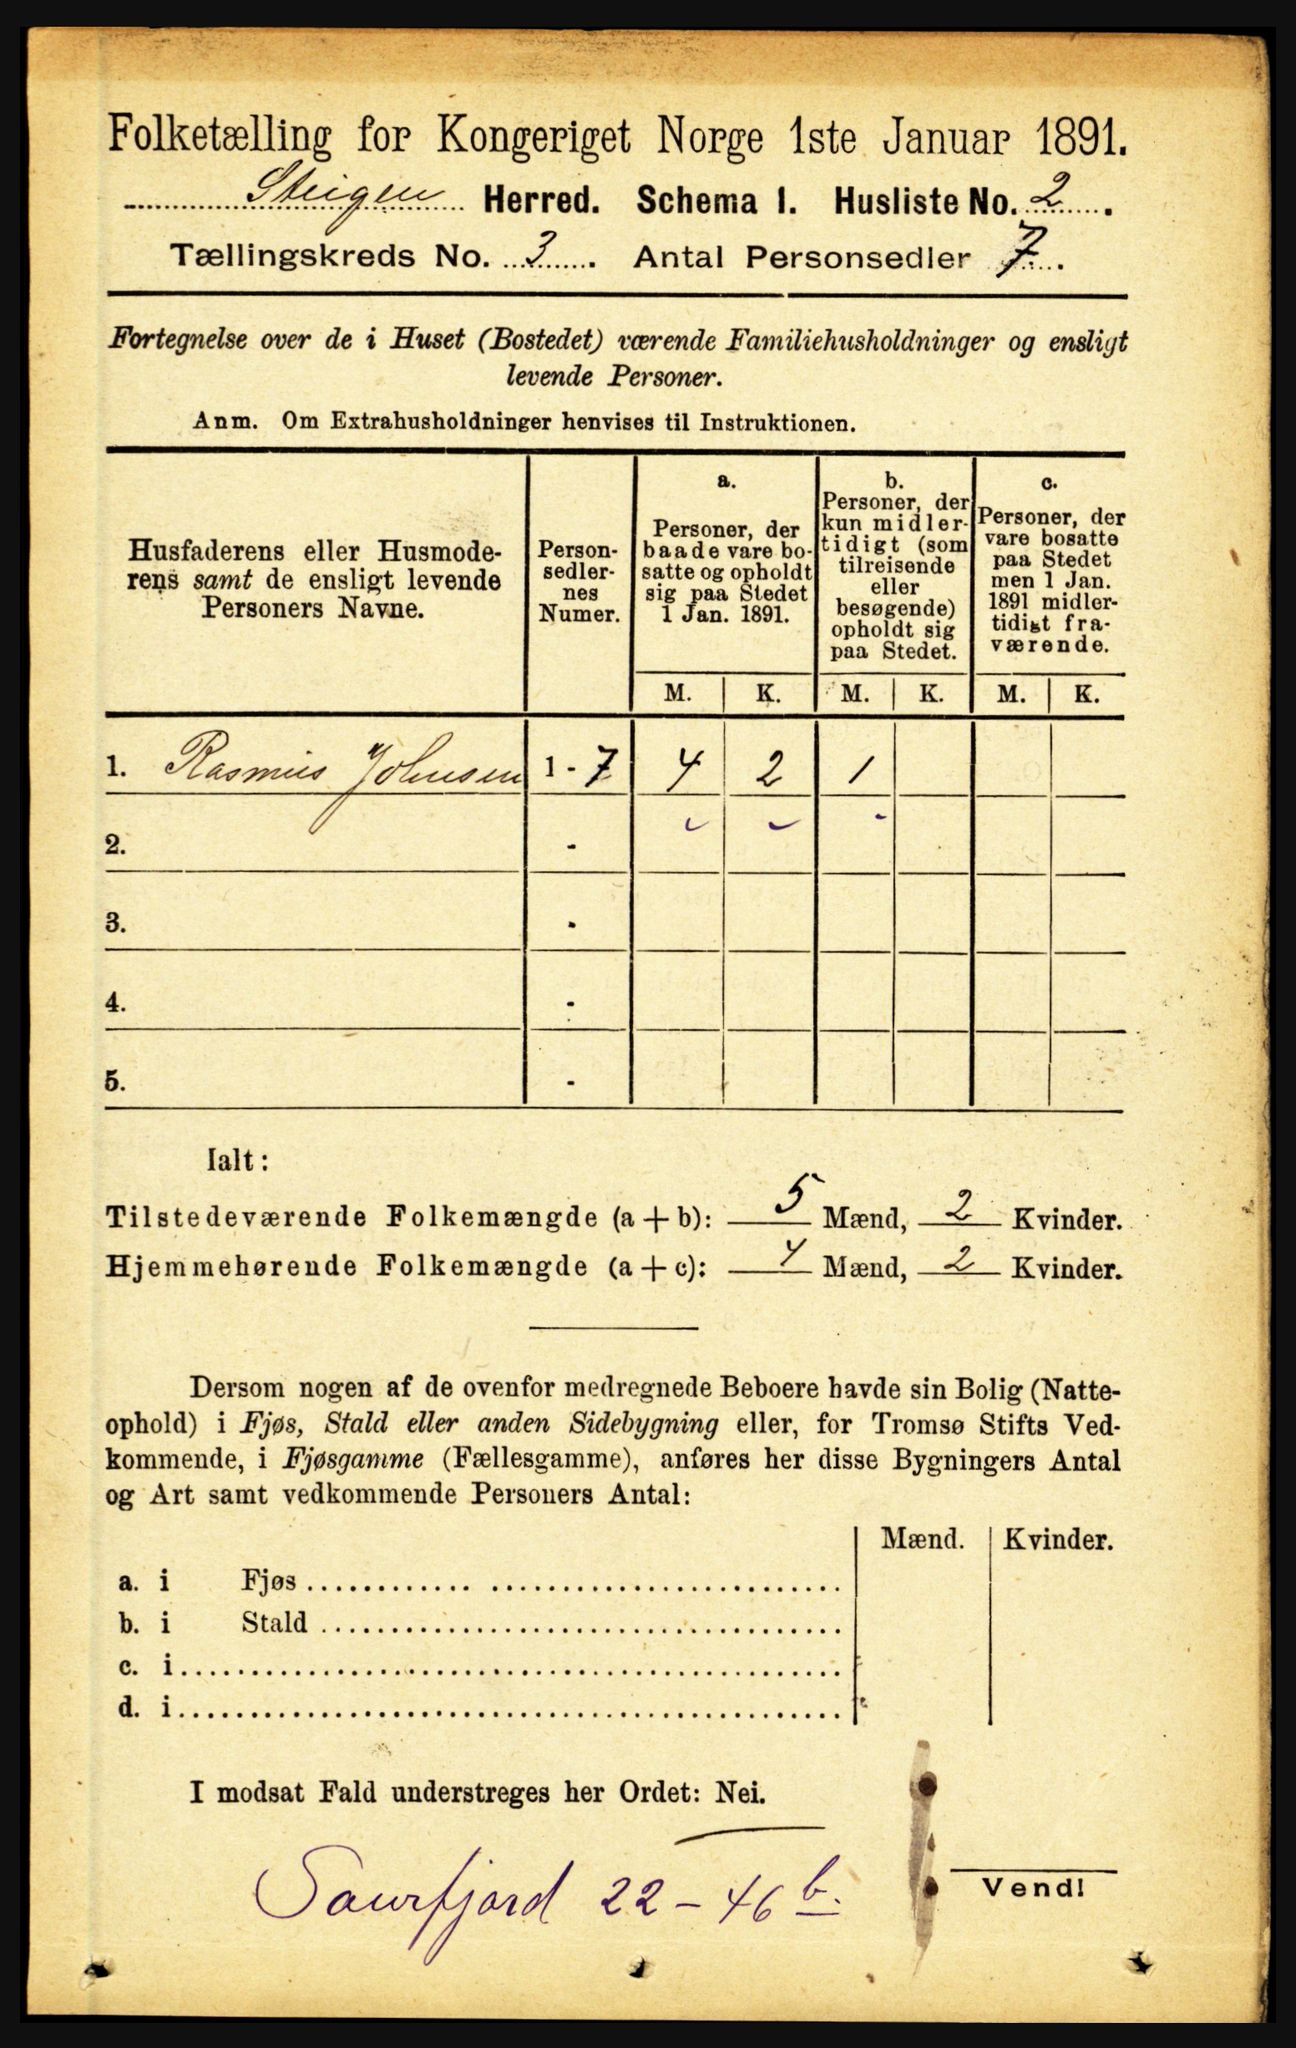 Folketælling for Kongeriget Norge 1ste Januar 1891.
Steigen Herred. Schema 1. Husliste No. 2.
Tællingskreds No. 3. Antal Personsedler 7.
Fortegnelse over de i Huset (Bostedet) værende Familiehusholdninger og ensligt
levende Personer.
Anm. Om Extrahusholdninger henvises til Instruktionen.
Husfaderens eller Husmode-
rens samt de ensligt levende
Personers Navne.
Person-
sedler-
nes
Numer.
a.
Personer, der
baade vare bo-
satte og opholdt
sig paa Stedet
1 Jan. 1891.
b.
Personer, der
kun midler-
tidigt (som
tilreisende
eller
besøgende)
opholdt sig
paa Stedet.
c.
Personer, der
vare bosatte
paa Stedet
men 1 Jan.
1891 midler-
tidigt fra-
værende.
M. K. M. K. M. K.
1. Rasmus Johnsen 1 - 7 4 2 1
2. -
3. -
4. -
5. -
Ialt:
Tilstedeværende Folkemængde (a + b): 5 Mænd, 2 Kvinder.
Hjemmehørende Folkemængde (a + c): 4 Mænd, 2 Kvinder.
Dersom nogen af de ovenfor medregnede Beboere havde sin Bolig (Natte-
ophold) i Fjøs, Stald eller anden Sidebygning eller, for Tromsø Stifts Ved-
kommende, i Fjøsgamme (Fællesgamme), anføres her disse Bygningers Antal
og Art samt vedkommende Personers Antal:
Mænd. Kvinder.
a. i Fjøs
b. i Stald
c. i
d. i
I modsat Fald understreges her Ordet: Nei.
Saurfjord 22 - 46 b.
Vend!